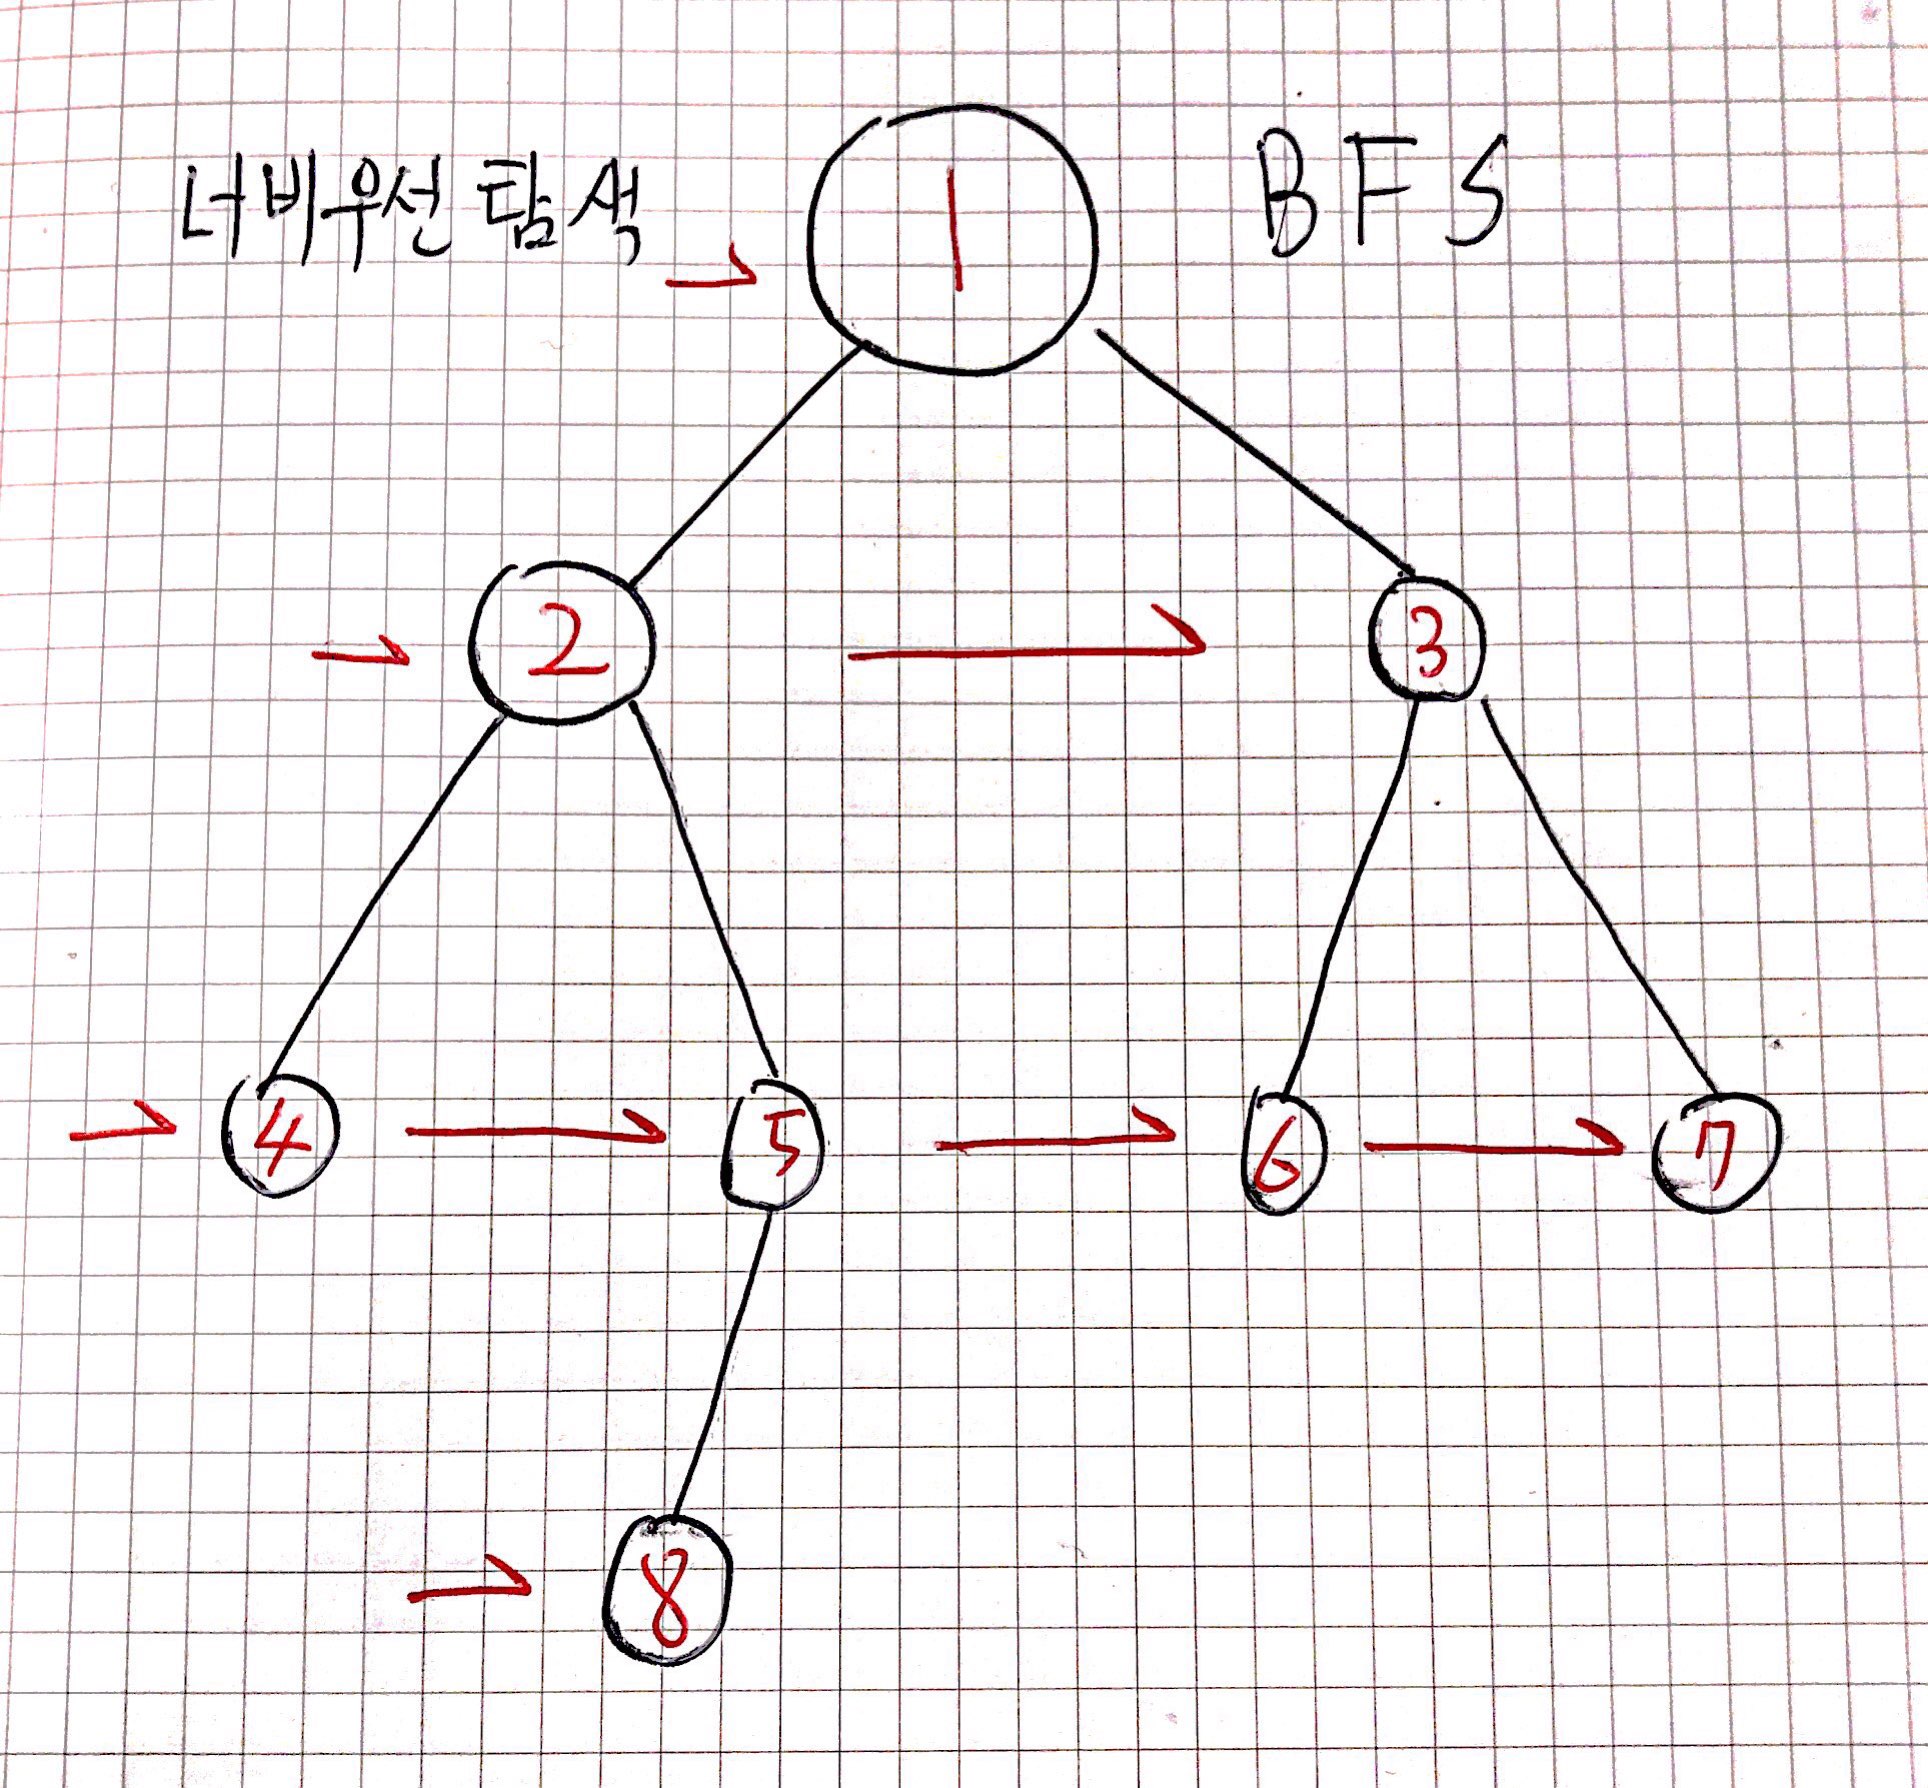 너비우선 탐색
BFS
1
2 3
4 5 6 7
8